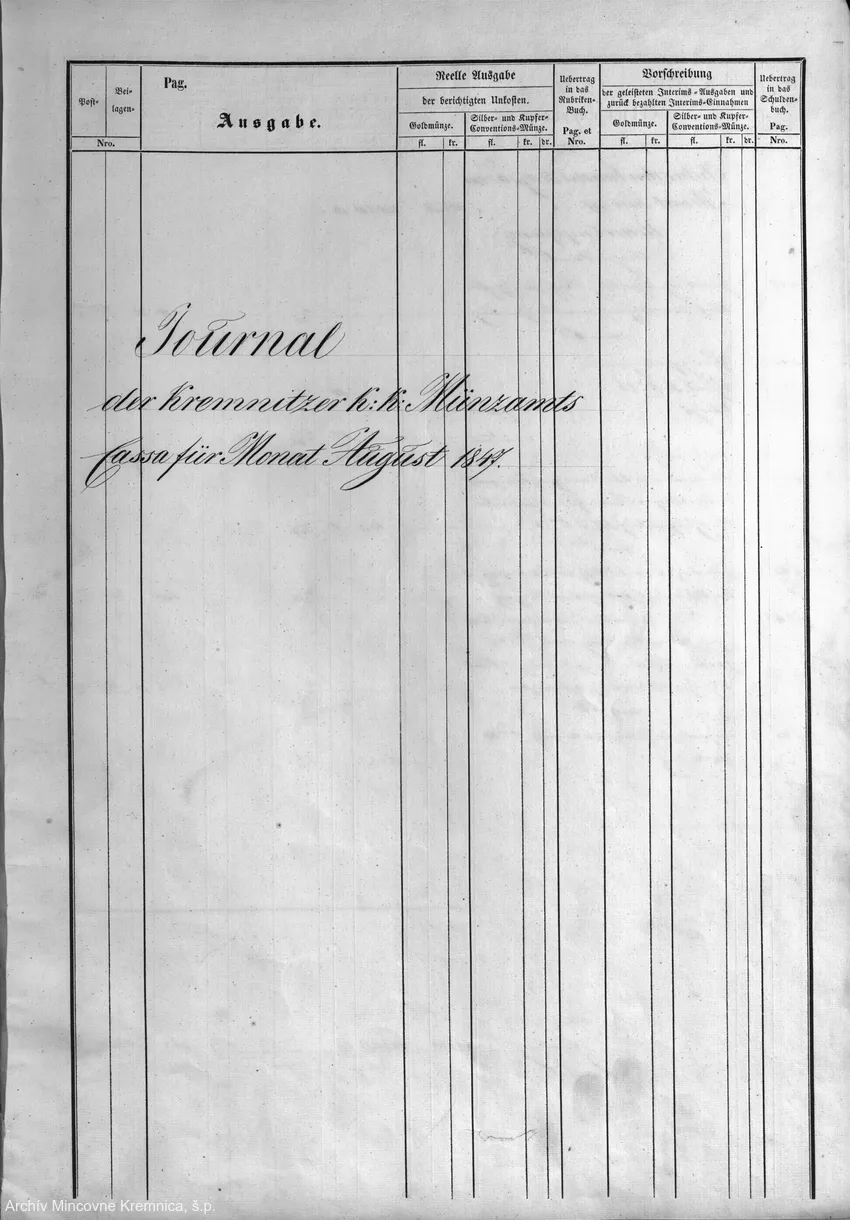 Post-
Bei-
lagen-
Nro.
Pag.
Ausgabe.
Reelle Ausgabe
der berichtigten Unkosten.
Goldmünze.
Silber- und Kupfer-
Conventions-Münze.
fl. kr. fl. kr. dr.
Uebertrag
in das
Rubriken-
Buch.
Pag. et
Nro.
Vorschreibung
der geleisteten Interims-Ausgaben und
zurück bezahlten Interims-Einnahmen
Goldmünze.
Silber- und Kupfer-
Conventions-Münze.
fl. kr. fl. kr. dr.
Uebertrag
in das
Schulden-
buch.
Pag.
Nro.
Journal
der Kremnitzer k: k: Münzamts
Cassa für Monat August 1847.
Archív Mincovne Kremnica, š.p.